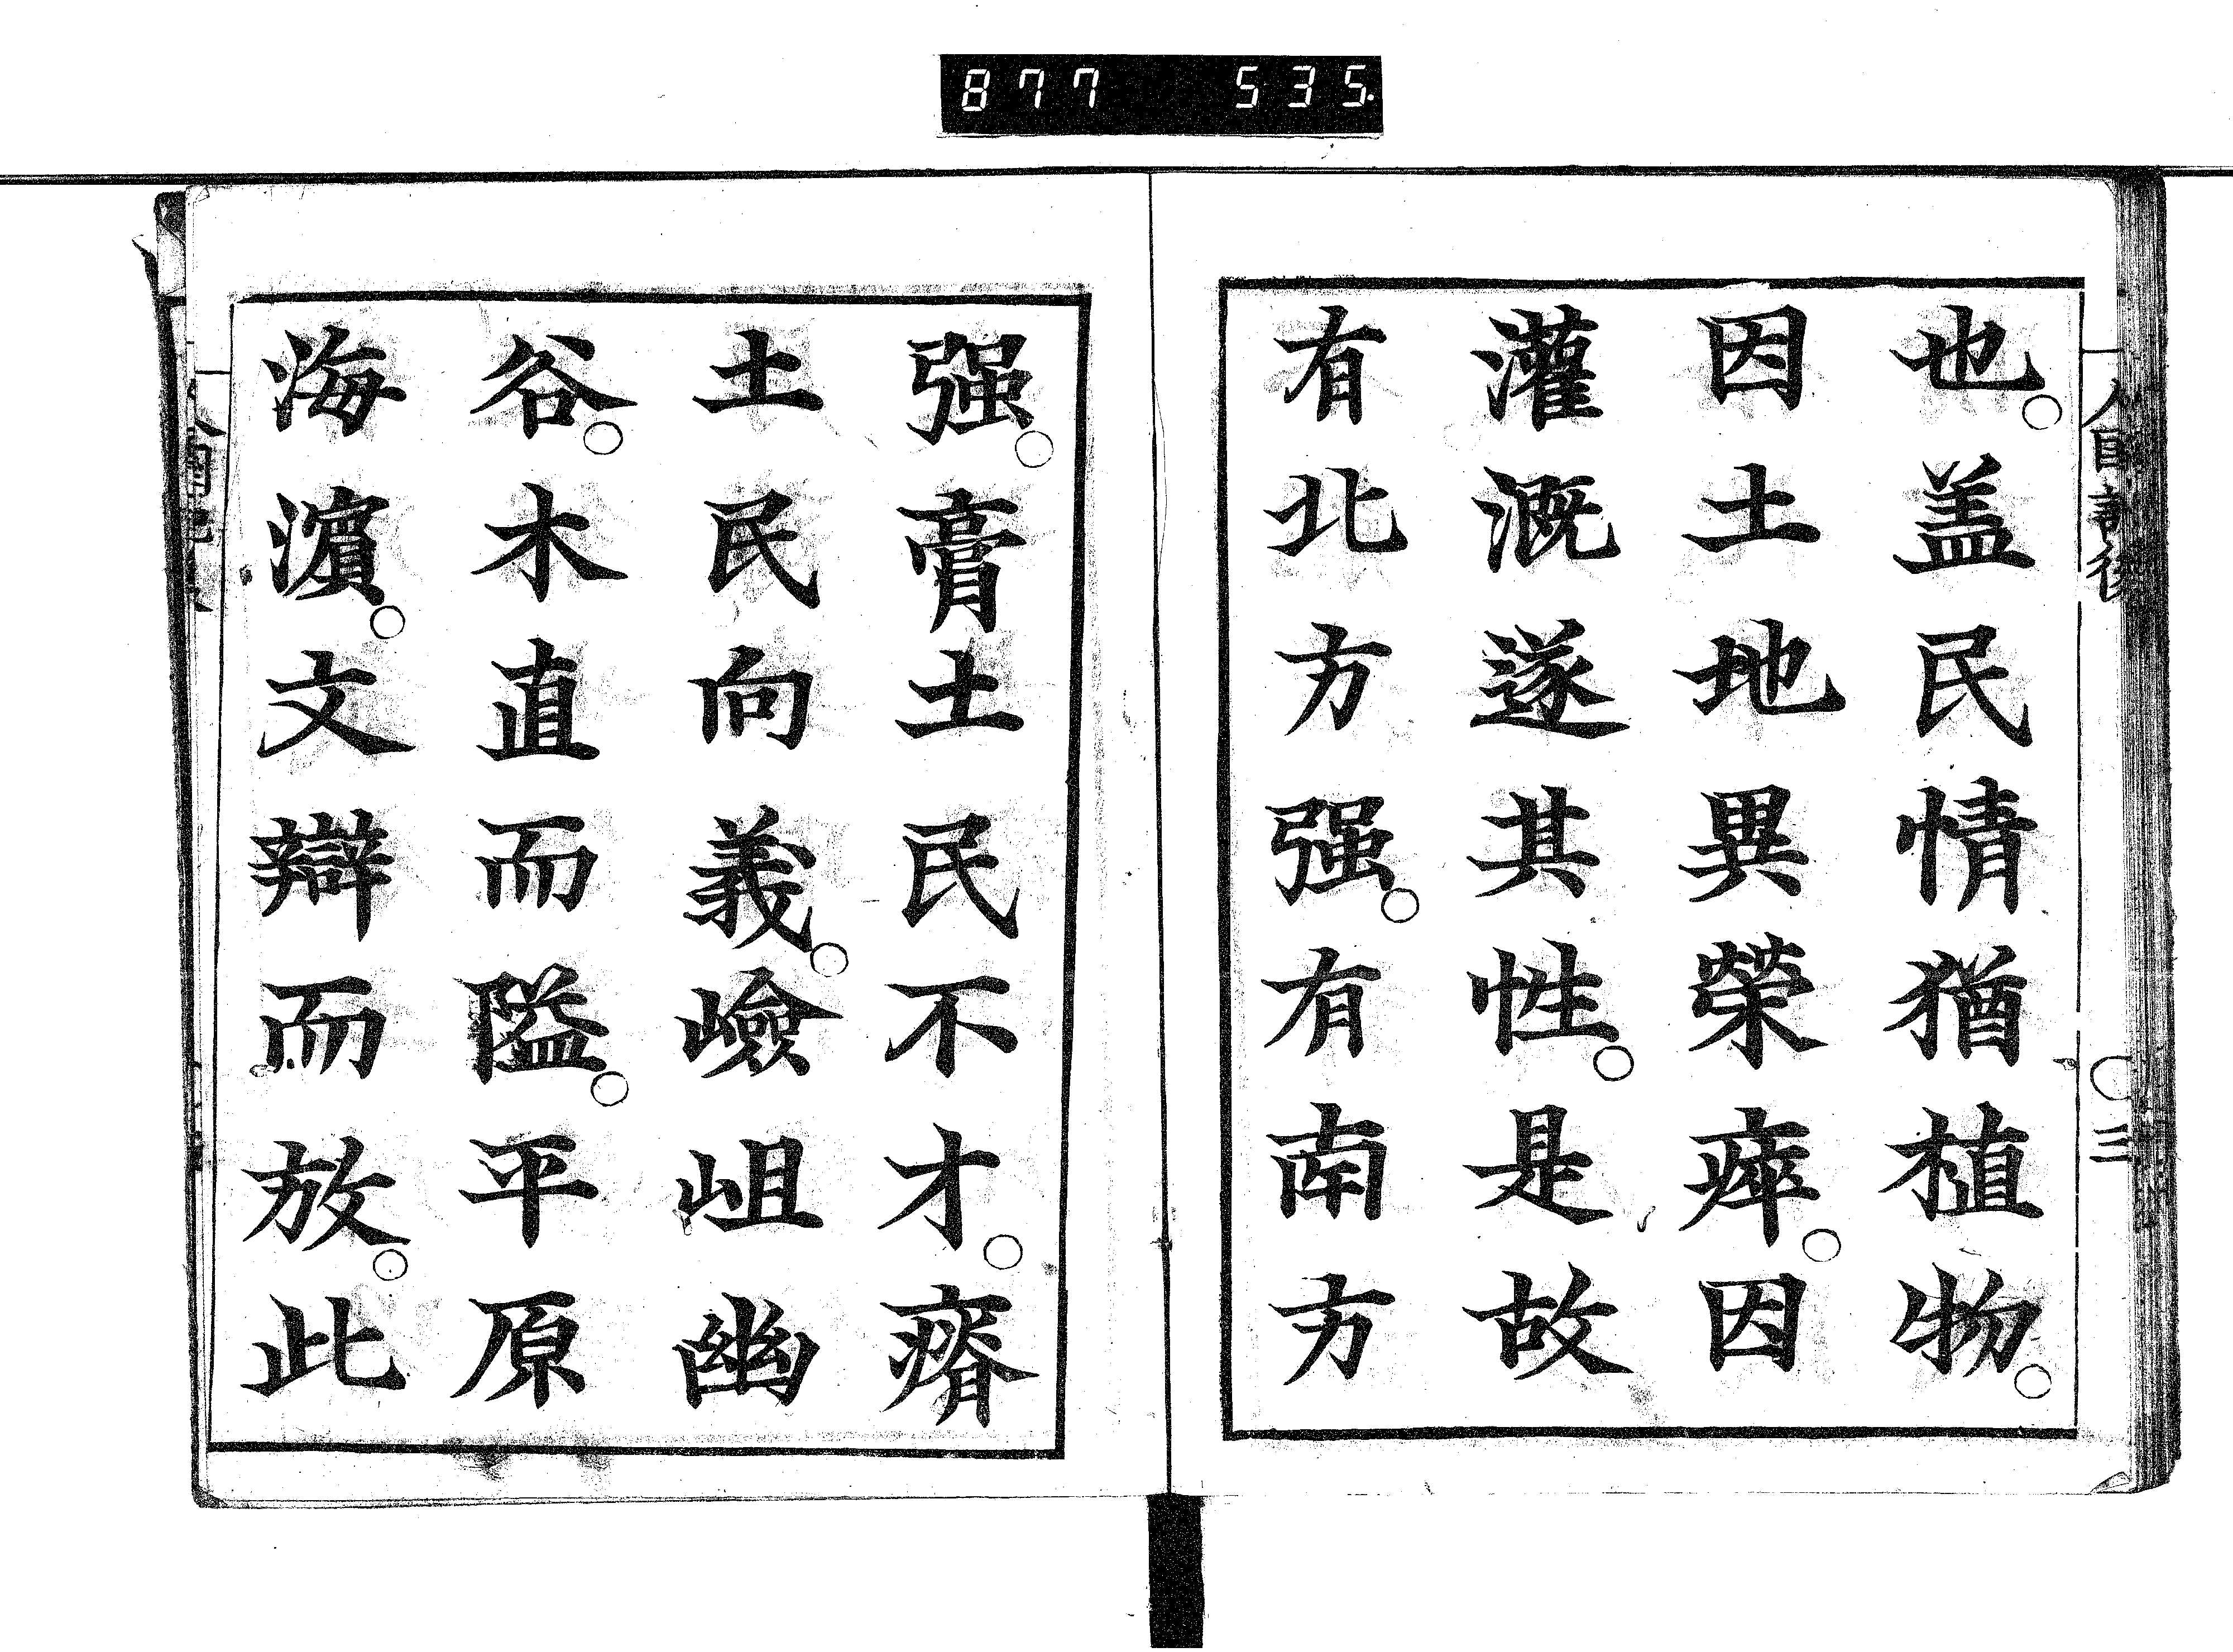 877 535.
也。盖民情猶植物。
因土地異榮瘁。因
灌溉遂其性。是故
有北方强。有南方
强。膏土民不才。瘠
土民向義。嶮岨幽
谷木直而隘。平原
海濵。文辯而放。此
三